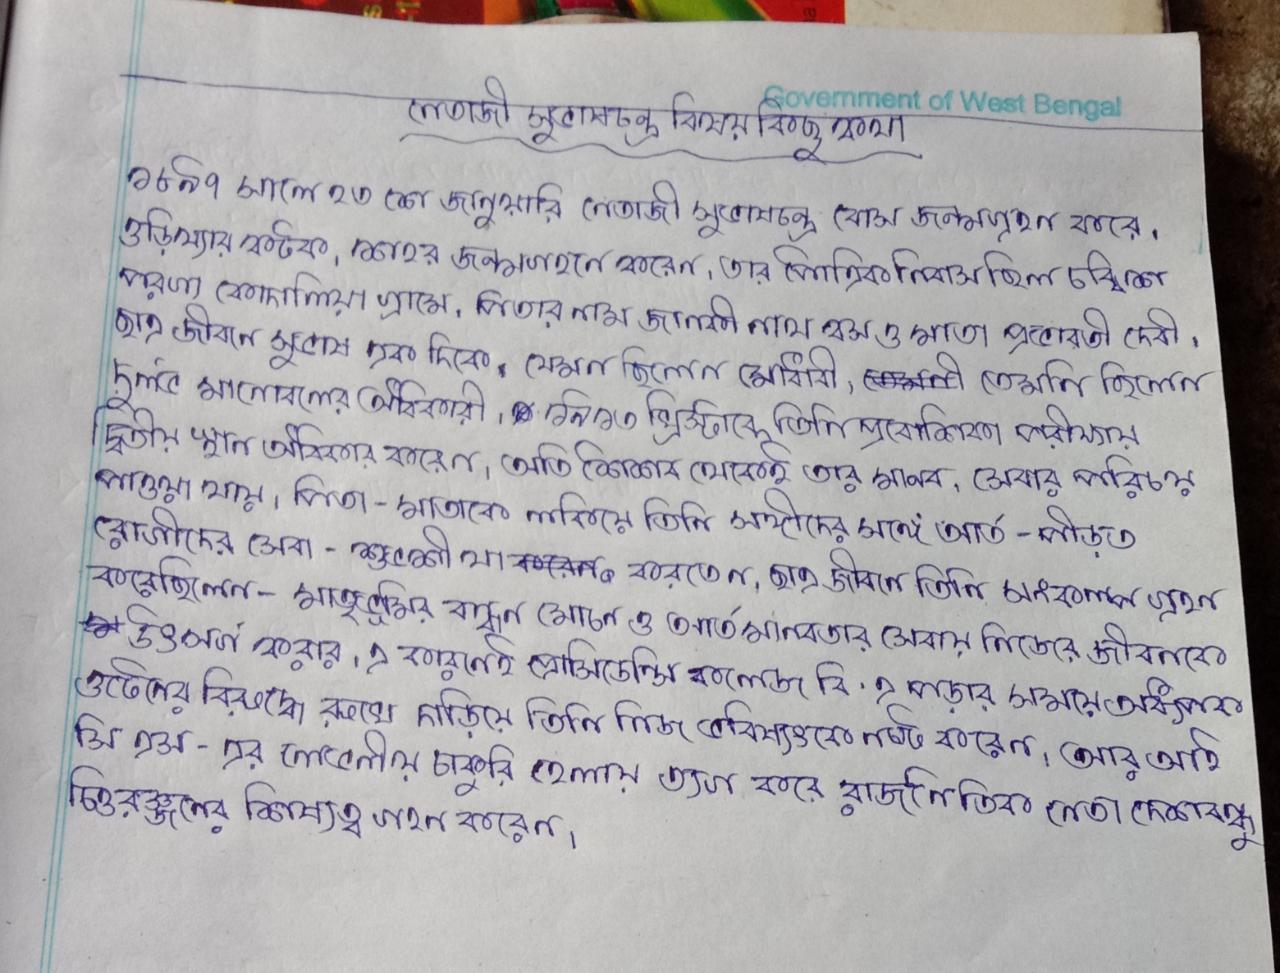 Government of West Bengal
নেতাজী সুভাষচন্দ্র বিষয় কিছু কথা
১৮৯৭ সালে ২৩ শে জানুয়ারি নেতাজী সুভাষচন্দ্র বোস জন্মগ্রহন করে।
ওড়িষ্যার কটক, শহর জন্মগ্রহনে করেন, তার পৈত্রিক নিবাস ছিল চব্বিশ
পরগনা কোদালিয়া গ্রামে, পিতার নাম জানকী নাথ বসু ও মাতা প্রভাবতী দেবী,
ছাত্র জীবনে সুভাষ এক দিকে, যেমন ছিলেন মেধাবী, তেমনি ছিলেন
দুর্লভ মানোবলের অধিকারী, ১৯১৩ খ্রিস্টাব্দে তিনি প্রবেশিকা পরীক্ষায়
দ্বিতীয় স্থান অধিকার করেন, অতি শৈশব থেকেই তার মানব, সেবার পরিচয়
পাওয়া যায়, পিতা - মাতাকে লুকিয়ে তিনি সঙ্গীদের সঙ্গে আর্ত - পীড়ত
রোগীদের সেবা - করতেন, ছাত্র জীবনে তিনি সংকল্প গ্রহন
করেছিলেন - মাতৃভূমির বন্ধন মোচন ও আর্তমানবতার সেবায় নিজেরে জীবনকে
উৎসর্গ করার, এ কারনেই প্রেসিডেন্সি কলেজে বি. এ পড়ার সময়ে অধ্যাপক
ওটেনের বিরুদ্ধে রুখে দাড়িয়ে তিনি নিজ ভবিষ্যৎকে নষ্ট করেন, আর আই
সি এস - এর লোভনীয় চাকুরি হেলায় ত্যাগ করে রাজনৈতিক নেতা দেশবন্ধু
চিত্তরঞ্জনের শিষ্যত্ব গ্রহন করেন,